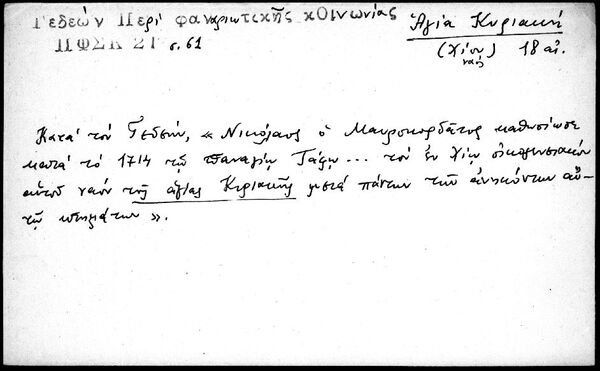 Γεδεών Περί φαναριωτικῆς κοινωνίας
ΠΦΣΚ 21 σ. 61
Ἁγία Κυριακή
(Χίου) 18 αἰ.
ναός
Κατά τόν Γεδεών, « Νικόλαος ὁ Μαυροκορδᾶτος καθωσίωσε
κατά τό 1714 τῷ Παναγίῳ Τάφῳ ... τόν ἐν Χίῳ οἰκογενειακόν
αὐτοῦ ναόν τῆς ἁγίας Κυριακῆς μετά πάντων τῶν ἀνηκόντων αὐ-
τῷ κτημάτων ».